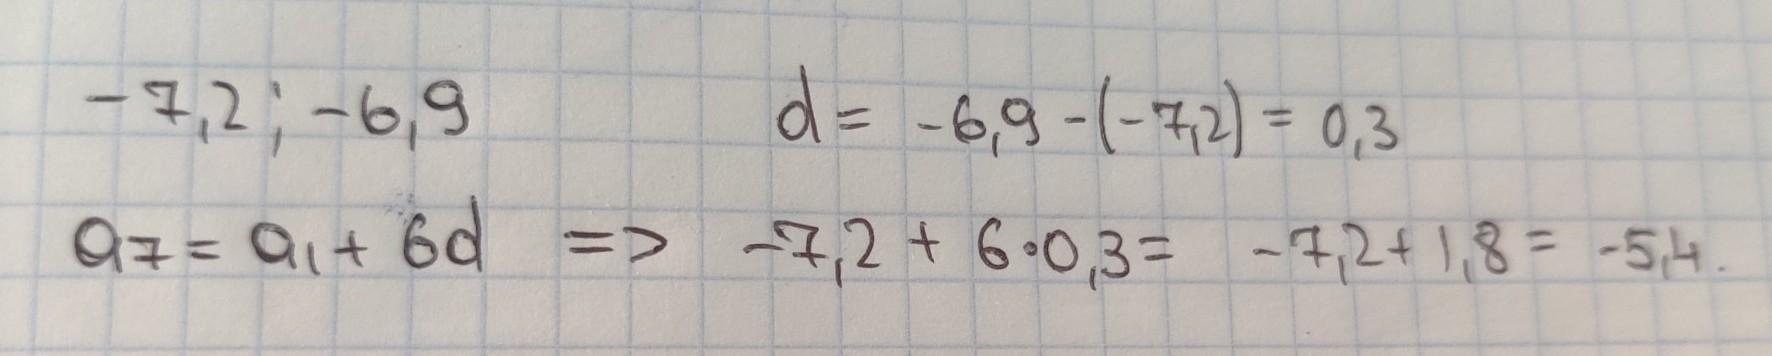 -7,2; -6,9 d = -6,9 -(-7,2) = 0,3
a₇ = a₁ + 6d => -7,2 + 6·0,3 = -7,2 + 1,8 = -5,4.